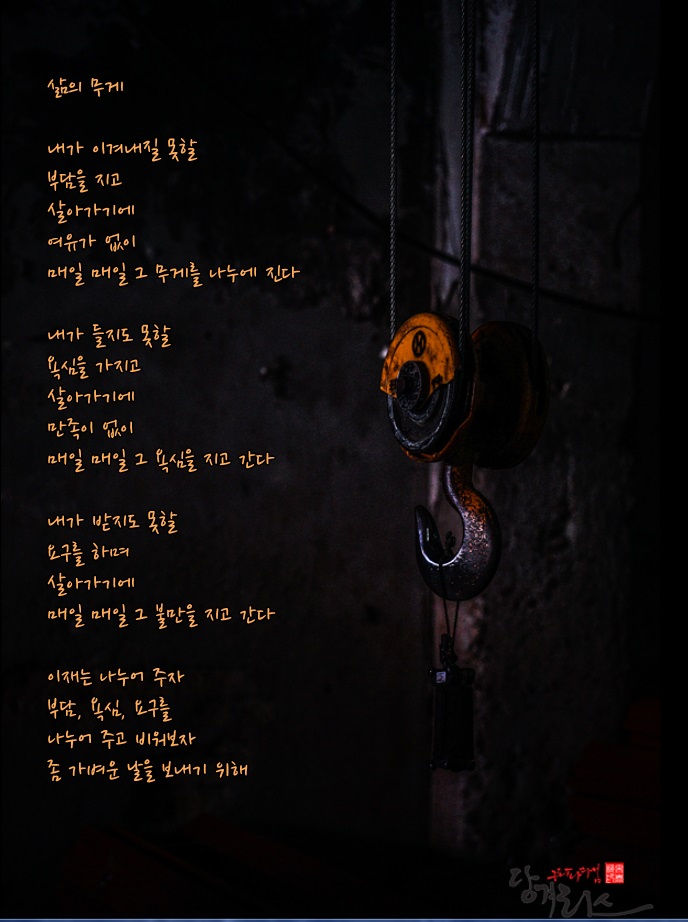 삶의 무게
내가 이겨내질 못할
부담을 지고
살아가기에
여유가 없이
매일 매일 그 무게를 나누에 진다
내가 들지도 못할
욕심을 가지고
살아가기에
만족이 없이
매일 매일 그 욕심을 지고 간다
내가 받지도 못할
요구를 하며
살아가기에
매일 매일 그 불만을 지고 간다
이재는 나누어 주자
부담, 욕심, 요구를
나누어 주고 비워보자
좀 가벼운 날을 보내기 위해